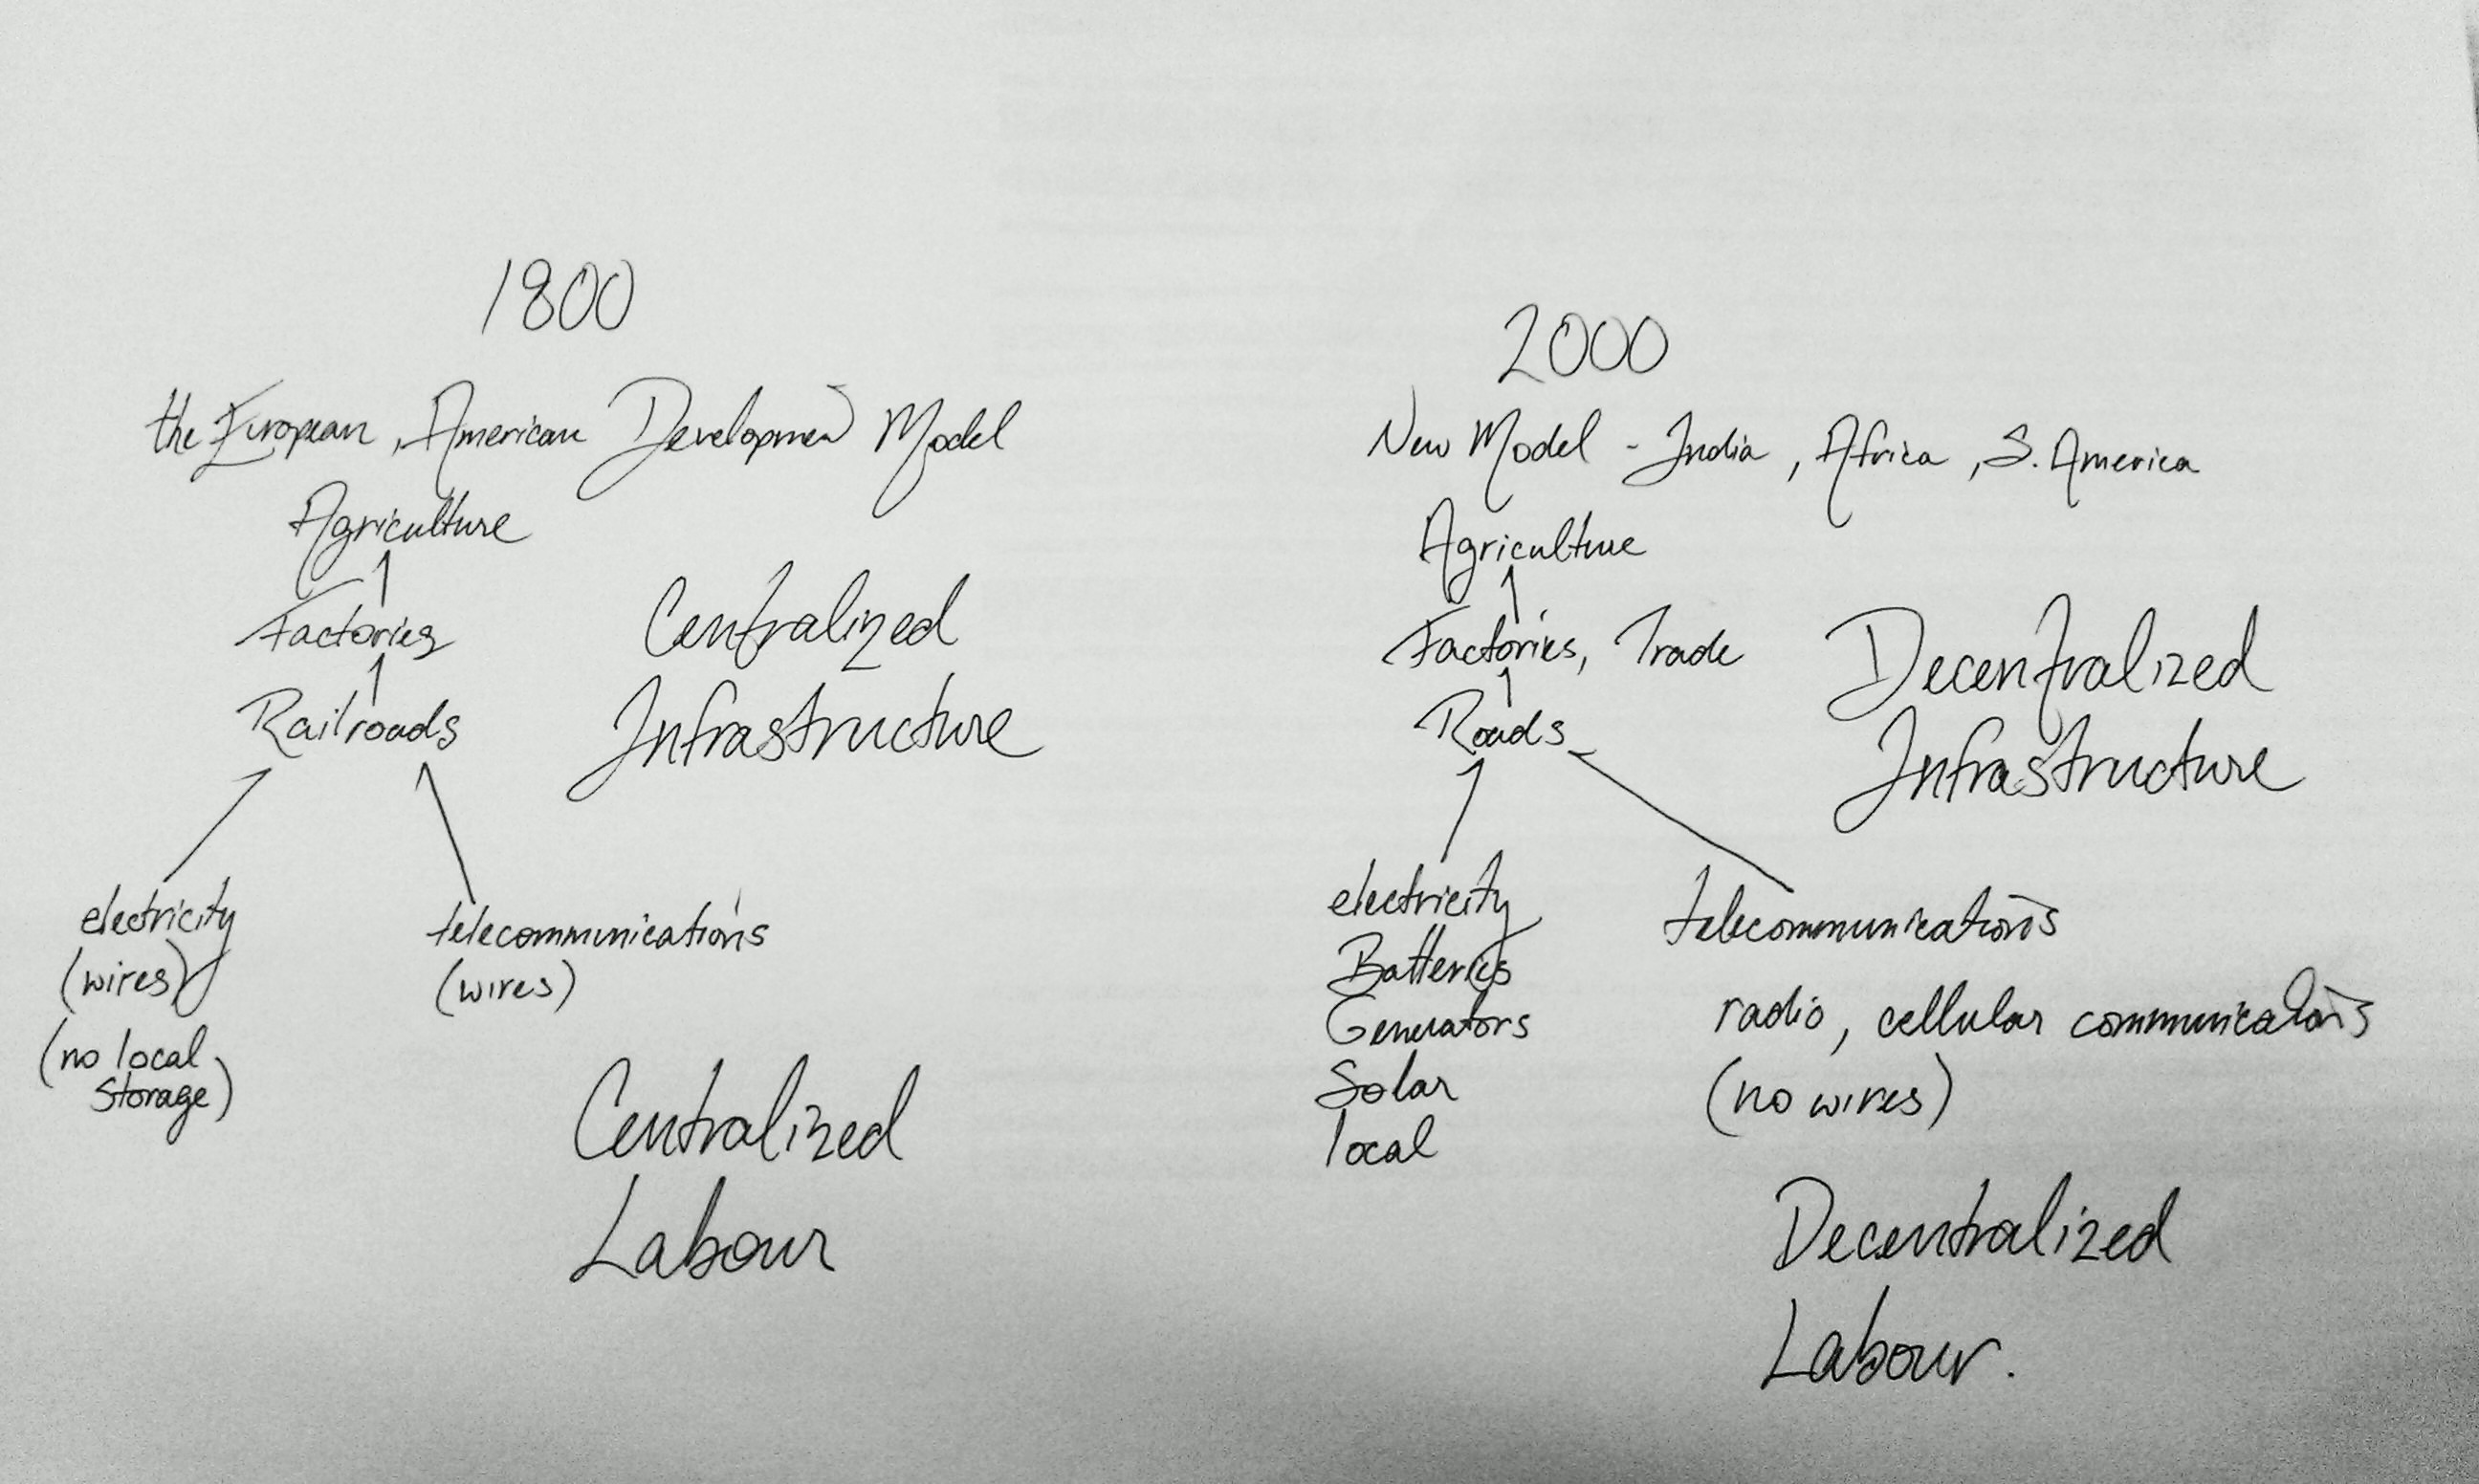 1800
the European, American Development Model
Agriculture
Factories
Railroads
Centralized
Infrastructure
electricity
(wires)
(no local
storage)
telecommunications
(wires)
Centralized
Labour
2000
New Model - India, Africa, S. America
Agriculture
Factories, Trade
Roads
Decentralized
Infrastructure
electricity
Batteries
Generators
Solar
local
telecommunications
radio, cellular communications
(no wires)
Decentralized
Labour.